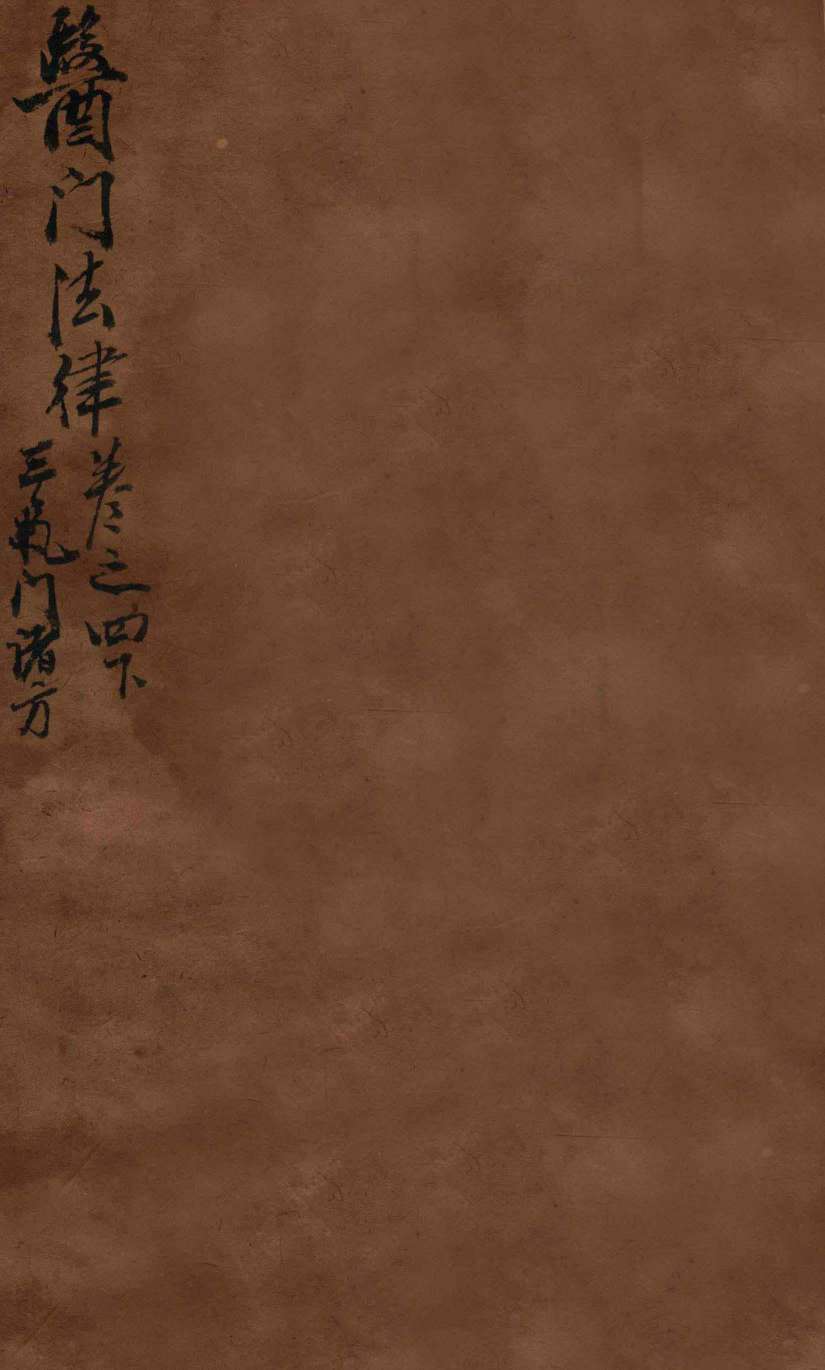 醫门法律
卷之四下
三氣门諸方